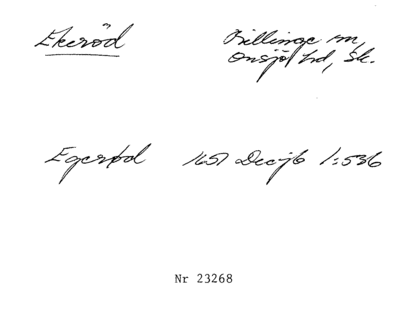 Ekeröd
Billinge sn,
Onsjö hd, Sk.
Egerød 1651 Decjb 1:536
Nr 23268